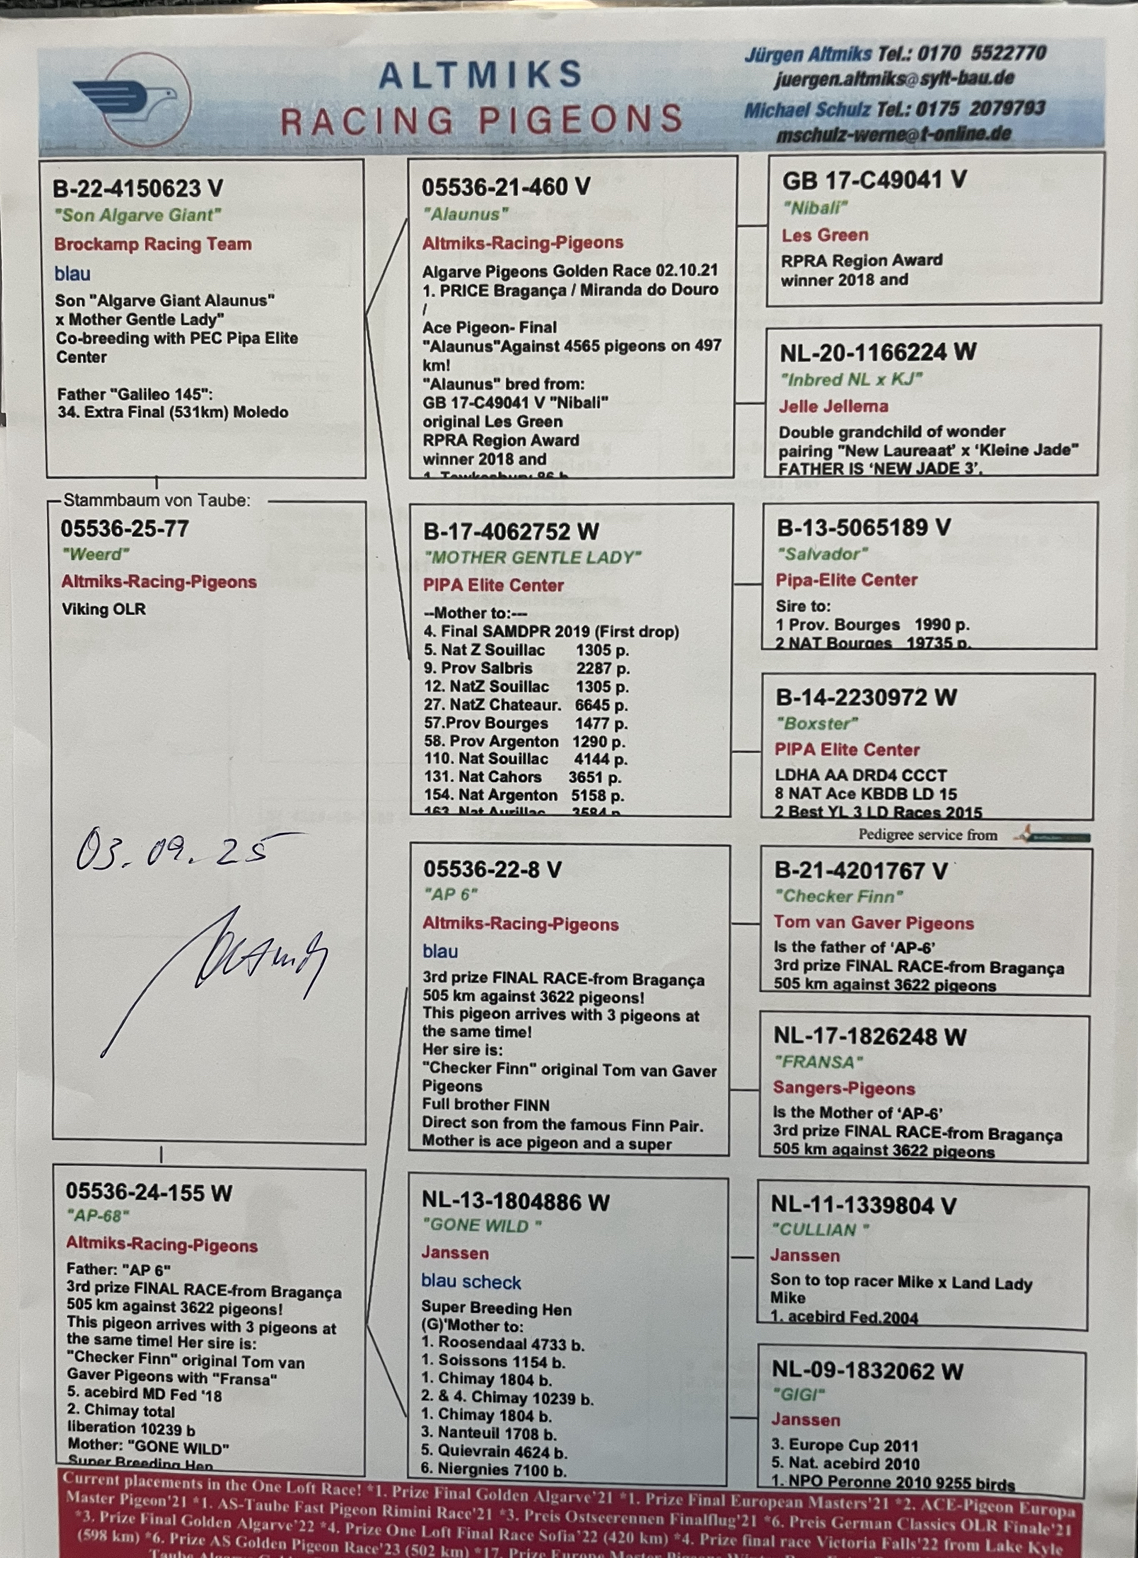 ALTMIKS
RACING PIGEONS
Jürgen Altmiks Tel.: 0170 5522770
juergen.altmiks@sylt-bau.de
Michael Schulz Tel.: 0175 2079793
mschulz-werne@t-online.de
B-22-4150623 V
"Son Algarve Giant"
Brockamp Racing Team
blau
Son "Algarve Giant Alaunus"
x Mother Gentle Lady"
Co-breeding with PEC Pipa Elite
Center
Father "Galileo 145":
34. Extra Final (531km) Moledo
Stammbaum von Taube:
05536-25-77
"Weerd"
Altmiks-Racing-Pigeons
Viking OLR
03.09.25
05536-24-155 W
"AP-68"
Altmiks-Racing-Pigeons
Father: "AP 6"
3rd prize FINAL RACE-from Bragança
505 km against 3622 pigeons!
This pigeon arrives with 3 pigeons at
the same time! Her sire is:
"Checker Finn" original Tom van
Gaver Pigeons with "Fransa"
5. acebird MD Fed '18
2. Chimay total
liberation 10239 b
Mother: "GONE WILD"
Super Breeding Hen
05536-21-460 V
"Alaunus"
Altmiks-Racing-Pigeons
Algarve Pigeons Golden Race 02.10.21
1. PRICE Bragança / Miranda do Douro
/
Ace Pigeon- Final
"Alaunus"Against 4565 pigeons on 497
km!
"Alaunus" bred from:
GB 17-C49041 V "Nibali"
original Les Green
RPRA Region Award
winner 2018 and
1. Tewkesbury 86 b
B-17-4062752 W
"MOTHER GENTLE LADY"
PIPA Elite Center
--Mother to:---
4. Final SAMDPR 2019 (First drop)
5. Nat Z Souillac 1305 p.
9. Prov Salbris 2287 p.
12. NatZ Souillac 1305 p.
27. NatZ Chateaur. 6645 p.
57.Prov Bourges 1477 p.
58. Prov Argenton 1290 p.
110. Nat Souillac 4144 p.
131. Nat Cahors 3651 p.
154. Nat Argenton 5158 p.
163. Nat Aurillac 3584 p.
05536-22-8 V
"AP 6"
Altmiks-Racing-Pigeons
blau
3rd prize FINAL RACE-from Bragança
505 km against 3622 pigeons!
This pigeon arrives with 3 pigeons at
the same time!
Her sire is:
"Checker Finn" original Tom van Gaver
Pigeons
Full brother FINN
Direct son from the famous Finn Pair.
Mother is ace pigeon and a super
NL-13-1804886 W
"GONE WILD "
Janssen
blau scheck
Super Breeding Hen
(G)'Mother to:
1. Roosendaal 4733 b.
1. Soissons 1154 b.
1. Chimay 1804 b.
2. & 4. Chimay 10239 b.
1. Chimay 1804 b.
3. Nanteuil 1708 b.
5. Quievrain 4624 b.
6. Niergnies 7100 b.
GB 17-C49041 V
"Nibali"
Les Green
RPRA Region Award
winner 2018 and
NL-20-1166224 W
"Inbred NL x KJ"
Jelle Jellema
Double grandchild of wonder
pairing "New Laureaat' x 'Kleine Jade"
FATHER IS 'NEW JADE 3'.
B-13-5065189 V
"Salvador"
Pipa-Elite Center
Sire to:
1 Prov. Bourges 1990 p.
2 NAT Bourges 19735 p.
B-14-2230972 W
"Boxster"
PIPA Elite Center
LDHA AA DRD4 CCCT
8 NAT Ace KBDB LD 15
2 Best YL 3 LD Races 2015
Pedigree service from
B-21-4201767 V
"Checker Finn"
Tom van Gaver Pigeons
Is the father of 'AP-6'
3rd prize FINAL RACE-from Bragança
505 km against 3622 pigeons
NL-17-1826248 W
"FRANSA"
Sangers-Pigeons
Is the Mother of 'AP-6'
3rd prize FINAL RACE-from Bragança
505 km against 3622 pigeons
NL-11-1339804 V
"CULLIAN "
Janssen
Son to top racer Mike x Land Lady
Mike
1. acebird Fed.2004
NL-09-1832062 W
"GIGI"
Janssen
3. Europe Cup 2011
5. Nat. acebird 2010
1. NPO Peronne 2010 9255 birds
Current placements in the One Loft Race! *1. Prize Final Golden Algarve'21 *1. Prize Final European Masters'21 *2. ACE-Pigeon Europa
Master Pigeon'21 *1. AS-Taube Fast Pigeon Rimini Race'21 *3. Preis Ostseerennen Finalflug'21 *6. Preis German Classics OLR Finale'21
*3. Prize Final Golden Algarve'22 *4. Prize One Loft Final Race Sofia'22 (420 km) *4. Prize final race Victoria Falls'22 from Lake Kyle
(598 km) *6. Prize AS Golden Pigeon Race'23 (502 km) *17. Prize Europe Master